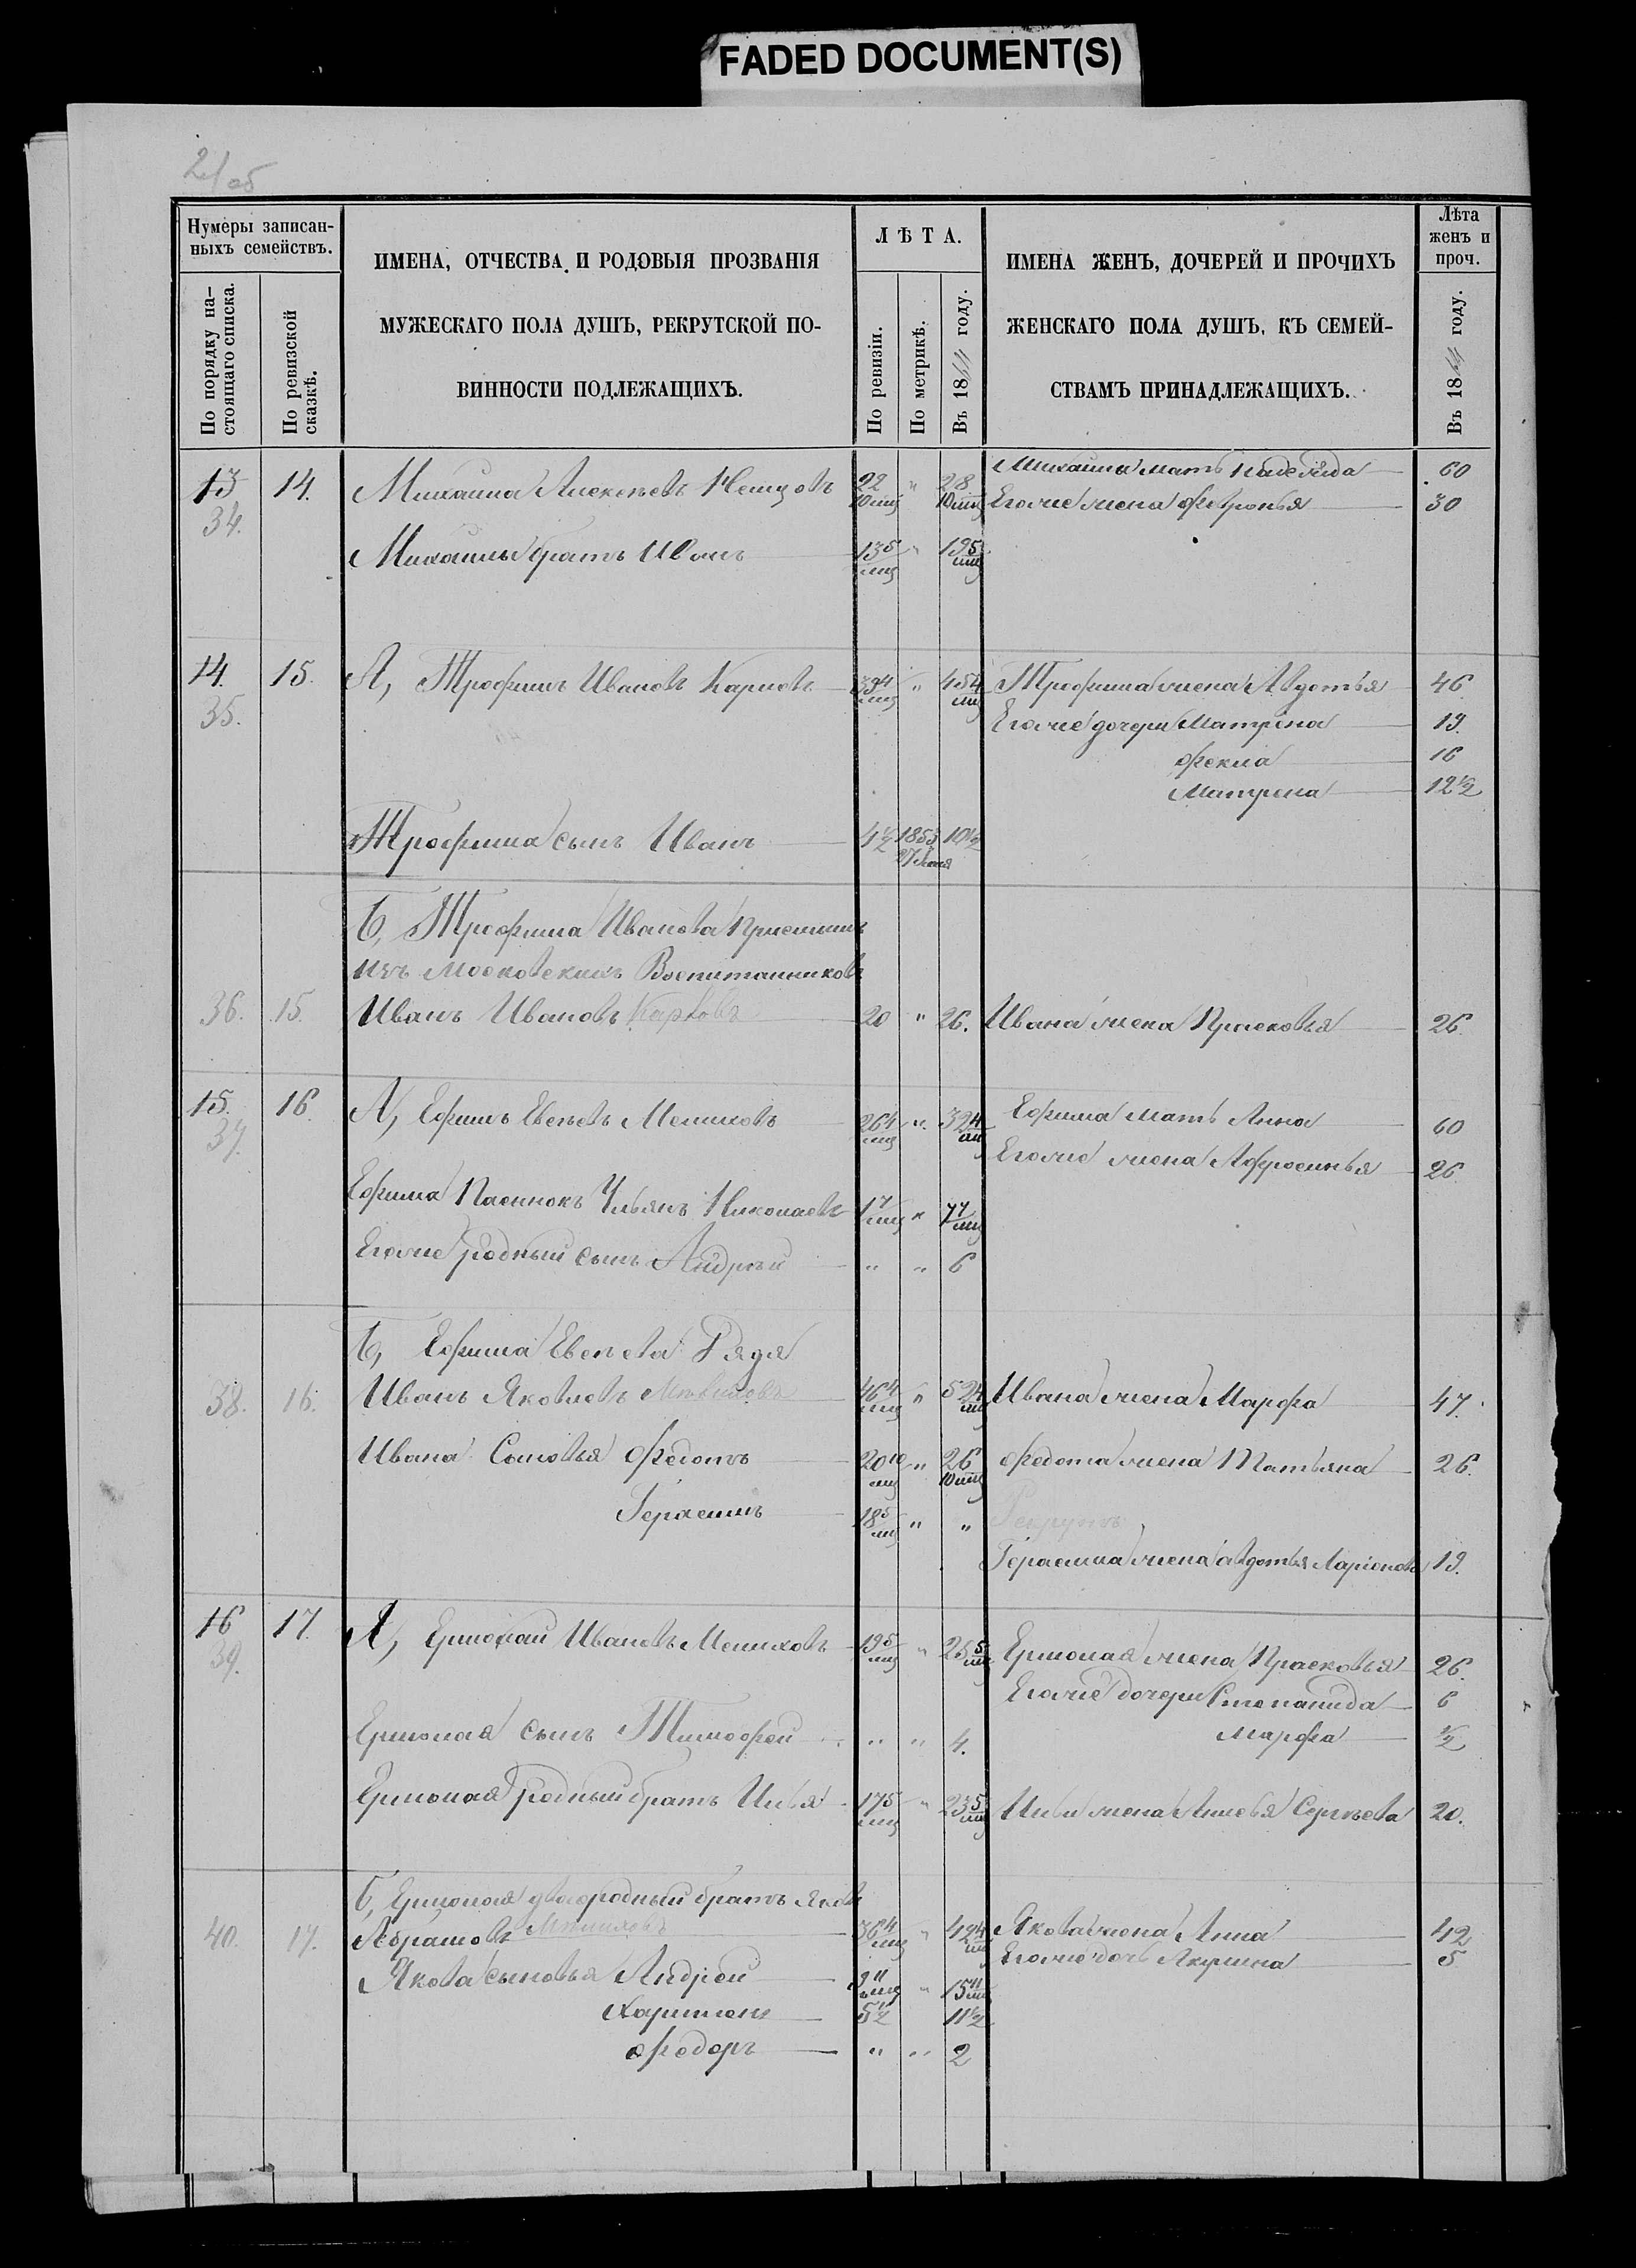 FADED DOCUMENT(S)
21/об
Нумеры записан-
ныхъ семействъ.
По порядку на-
стоящаго списка.
По ревизской
сказкѣ.
ИМЕНА, ОТЧЕСТВА И РОДОВЫЯ ПРОЗВАНІЯ
МУЖЕСКАГО ПОЛА ДУШЪ, РЕКРУТСКОЙ ПО-
ВИННОСТИ ПОДЛЕЖАЩИХЪ.
ЛѢТА.
По ревизіи.
По метрикѣ.
Въ 1864 году.
ИМЕНА ЖЕНЪ, ДОЧЕРЕЙ И ПРОЧИХЪ
ЖЕНСКАГО ПОЛА ДУШЪ, КЪ СЕМЕЙ-
СТВАМЪ ПРИНАДЛЕЖАЩИХЪ.
Лѣта
женъ и
проч.
Въ 1864 году.
Михаила мать Надежда 60
13 14. Михаила Алексѣевъ Немцовъ 22 10 мц " 28 10 мц Егоже жена Февронья 30
34.
Михаилы братъ Иванъ 13 5/мц " 19 5/мц
14. 15. А, Трофимъ Ивановъ Карповъ 39 4/мц " 45 4/мц Трофима жена Авдотья 46
35. Егоже дочери Матрёна 19.
Фекла 16
Матрена 12 1/2
Трофима сынъ Иванъ 4 1/2 1853 10 1/2
Б, Трофима Иванова Приемышъ
изъ Московскихъ Воспитанниковъ
36. 15. Иванъ Ивановъ Карповъ 20 " 26. Ивана жена Прасковья 26
15. 16. А, Ефимъ Евсѣевъ Мениховъ 26 4/мц " 32 4/мц Ефима мать Анна 60
37. Егоже жена Афросинья 26
Ефима Пасынокъ Ульянъ Николаевъ 1 7/мц " 7 7/мц
Егоже родный сынъ Андрѣй " " 6
Б, Ефима Евсѣева Дядя
38. 16. Иванъ Яковлевъ 46 4/мц " 52 4/мц Ивана жена Марфа 47.
Ивана Сыновья Федотъ 20 10/мц " 26 10 мц Федота жена Татьяна 26.
Герасимъ 18 5/мц " " Рекрутъ
Герасима жена Авдотья Ларіонова 19.
16 17. А, Ермолай Ивановъ Мениховъ 19 5/мц " 25 5/мц Ермолая жена Прасковья 26.
39. Егоже дочери Степанида 6
Ермолая сынъ Тимофей " " 4. Марфа 1/2
Ермолая родный братъ Илья 17 5/мц " 23 5/мц Ильи жена Сергѣева 20.
Б, Ермолая двоюродный братъ Яковъ
40. 17. Абрамовъ 36 4/мц " 42 4/мц Якова жена Анна 42
Егоже дочь Акулина 5
Якова сыновья Андрей 9 11/мц " 15 11/мц
Харитонъ 5 1/2 11 1/2
Федоръ " " 2